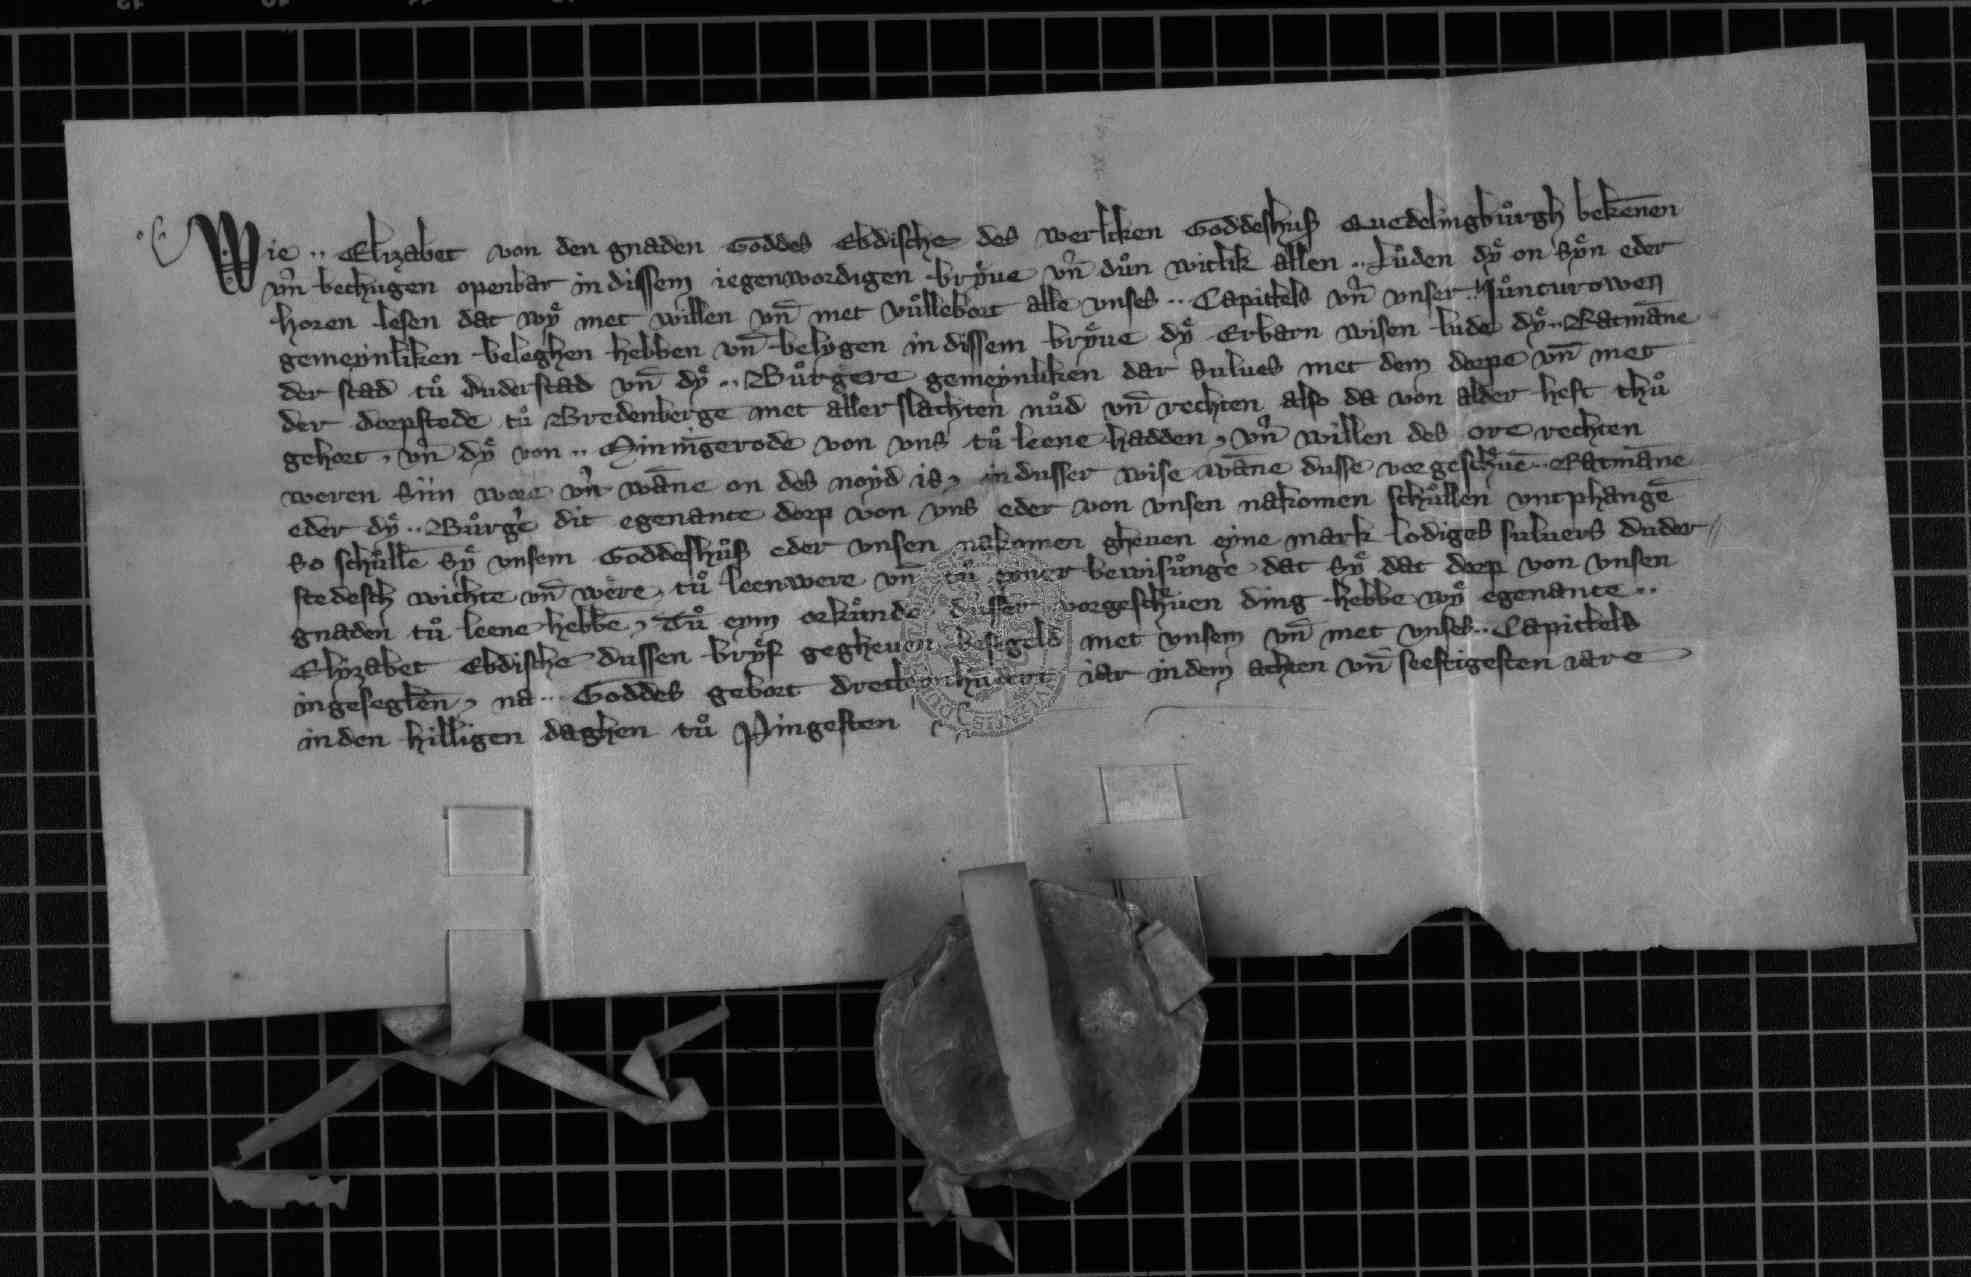 Wie .. Elizabet von den gnaden Goddes Ebdische des werltken Goddeshus Quedelingbůrgh bekēnen
vn̄ bethugen openbar in dissem iegenwordigen bryͤue vn̄ důn witlik allen .. Lůden dyͤ on syͤn eder
horen lesen dat wyͤ met willen vn̄ met vůllebort alle vnses .. Capittels vn̄ vnser .. Jůncurowen
gemeynliken beleghen hebben vn̄ belygen in dissem bryͤue dyͤ Erbarn wisen lude dyͤ .. Ratmāne
der stad tů duderstad vn̄ dyͤ .. Bůrgere gemeynliken dar sulues met dem dorpe vn̄ met
der dorpstede tů Bredenberge met aller slachten nůd vn̄ rechten also da von alder heft thů
gehort, vn̄ dyͤ von .. Minnīgerode von vns tů leene hadden, vn̄ willen des ore rechten
weren siin wore vn̄ wāne on des noyd is, in dusser wise wāne dusse vorgeschͤuē .. Ratmāne
eder dyͤ .. Bůrge dit egenante dorp von vns eder von vnsen nakomen schůllen vntphangē
so schůllē syͤ vnsem Goddeshůs eder vnsen nakomen gheuen eyne mark lodiges suluers duder //
stedesch wichte vn̄ were, tů leenwere vn̄ tů eyner bewisůnge dat syͤ dat dorp von vnsen
gnaden tů leene hebbē, Tů eym orkůnde dusser vorgeschͤuen ding hebbe wyͤ egenante ..
Elyzabet Ebdische dussen bryͤf gegheuen besegeld met vnsem vn̄ met vnses .. Capittels
ingeseglen, na .. Goddes gebort dretteynhūdert iar in dem achten vn̄ seestigesten iare
in den hilligen daghen tů Pingesten